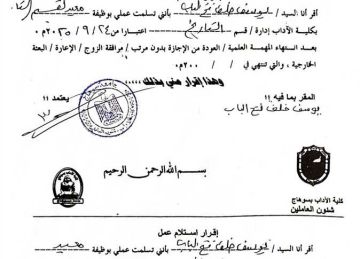 أقر أنا السيد / يوسف خلف فتح الباب بأني تسلمت عملي بوظيفة معيد بقسم
بكلية الآداب إدارة / قسم التاريخ اعتبارا من ٢٤ / ٩ / ٢٠٢٥م
بعد انتهاء المهمة العلمية / العودة من الإجازة بدون مرتب / مرافقة الزوج / الإعارة / البعثة
الخارجية ، والتي تنتهي في / / ٢٠٠م
وهذا إقرار مني بذلك ......
المقر بما فيه !!
يعتمد !!
يوسف خلف فتح الباب
بسم الله الرحمن الرحيم
كلية الآداب بسوهاج
شئون العاملين
إقرار استلام عمل
أقر أنا السيد / يوسف خلف فتح الباب بأني تسلمت عملي بوظيفة معيد